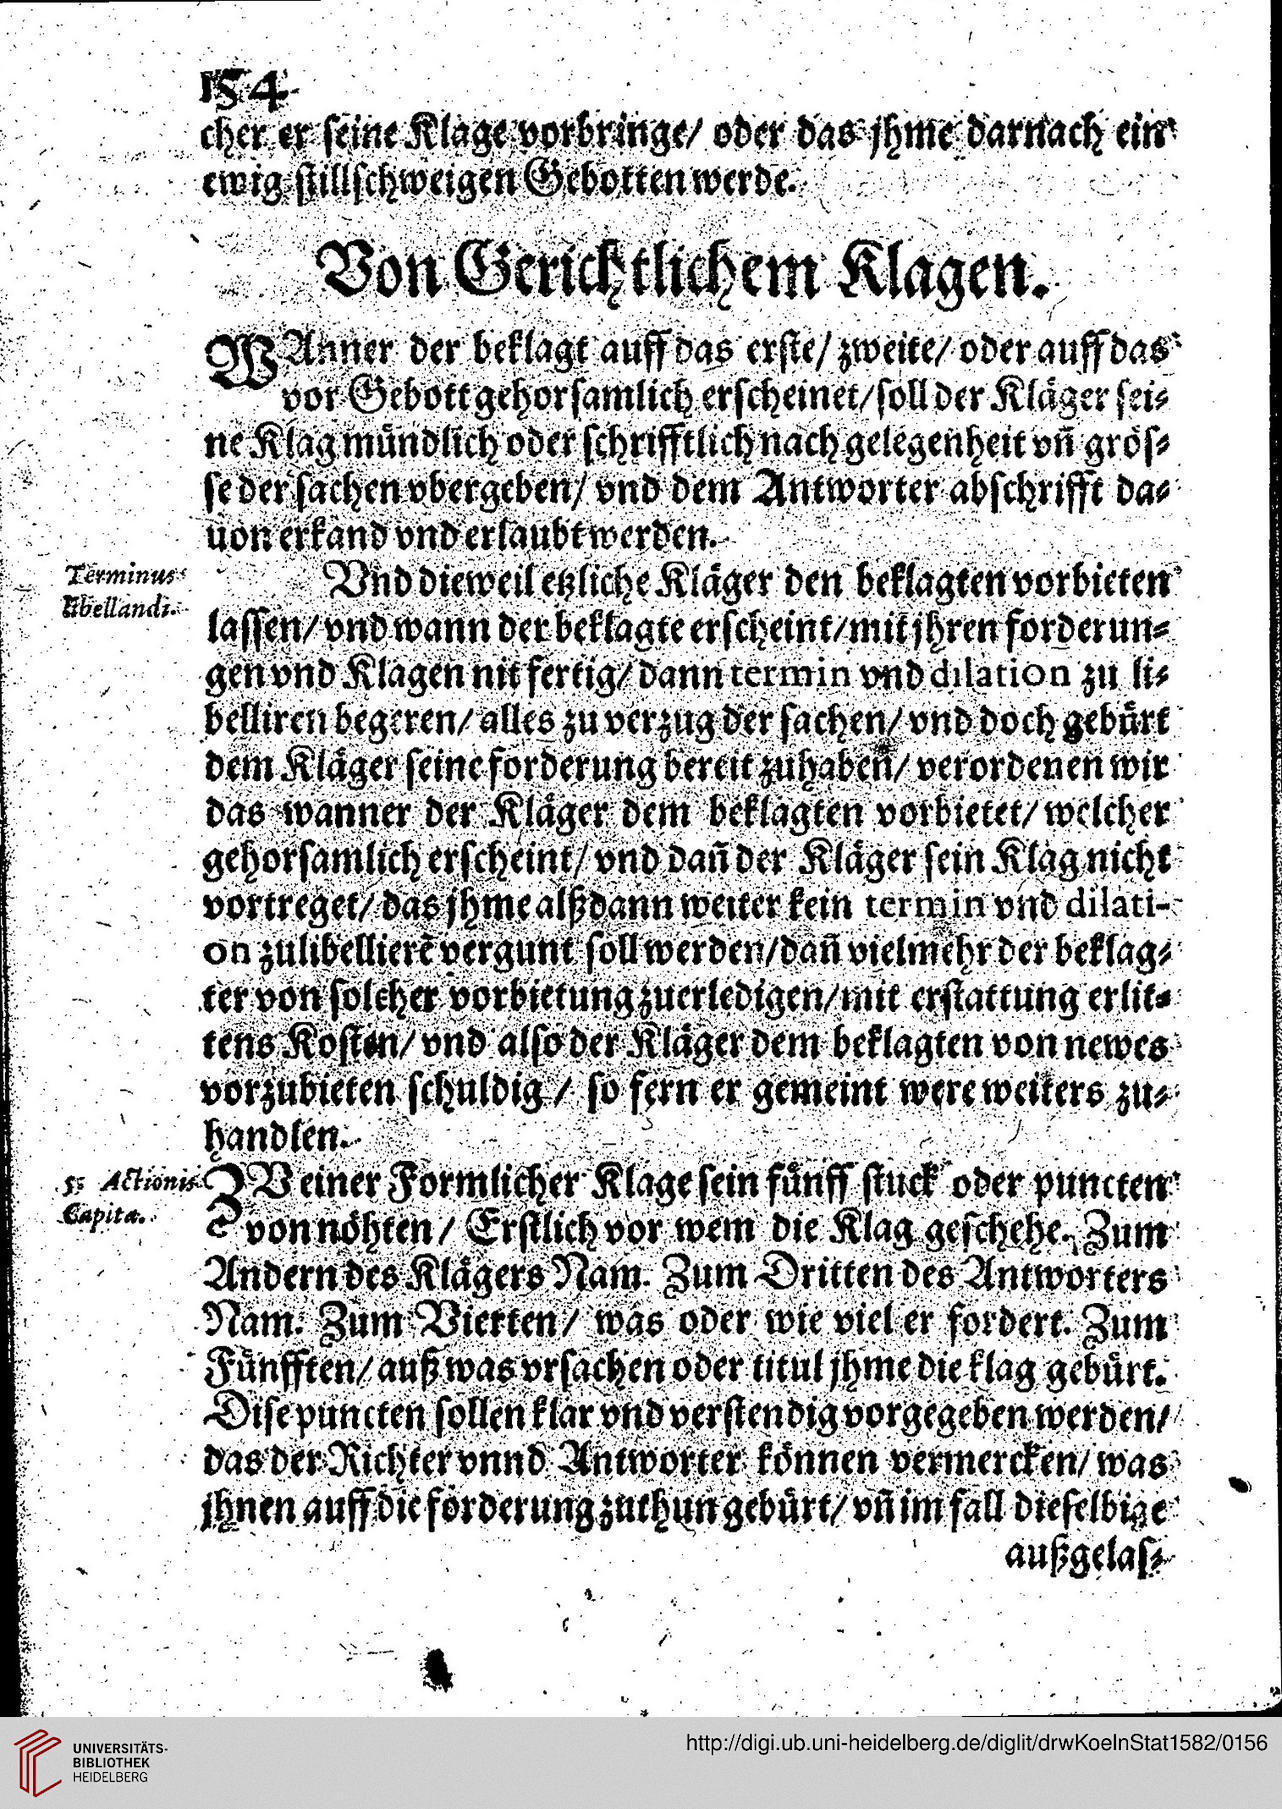 154
cher er seine Klage vorbringe/ oder das jhme darnach ein
ewig stillschweigen Gebotten werde.
Von Gerichtlichem Klagen.
WAnner der beklagt auff das erste/ zweite/ oder auff das
vor Gebott gehorsamlich erscheinet/ soll der Kläger sei-
ne Klag mündlich oder schrifftlich nach gelegenheit vñ grös-
se der sachen vbergeben/ vnd dem Antworter abschrifft da-
uon erkand vnd erlaubt werden.
Terminus
libellandi.
Vnd dieweil etzliche Kläger den beklagten vorbieten
lassen/ vnd wann der beklagte erscheint/ mit jhren forderun-
gen vnd Klagen nit fertig/ dann termin vnd dilation zu li-
belliren begeren/ alles zu verzug der sachen/ vnd doch gebürt
dem Kläger seine forderung bereit zuhaben/ verordenen wir
das wanner der Kläger dem beklagten vorbietet/ welcher
gehorsamlich erscheint/ vnd dañ der Kläger sein Klag nicht
vortreget/ das jhme alßdann weiter kein termin vnd dilati-
on zulibellierẽ vergunt soll werden/ dañ vielmehr der beklag-
ter von solcher vorbietung zuerledigen/ mit erstattung erlit-
tens Kosten/ vnd also der Kläger dem beklagten von newes
vorzubieten schuldig/ so fern er gemeint were weiters zu-
handlen.
5. Actionis
Capita.
ZV einer Formlicher Klage sein fünff stuck oder puncten
von nöhten/ Erstlich vor wem die Klag geschehe. Zum
Andern des Klägers Nam. Zum Dritten des Antworters
Nam. Zum Vierten/ was oder wie viel er fordert. Zum
Fünfften/ auß was vrsachen oder titul jhme die klag gebürt.
Dise puncten sollen klar vnd verstendig vorgegeben werden/
das der Richter vnnd Antworter können vermercken/ was
jhnen auff die forderung zuthun gebürt/ vñ im fall dieselbige
außgelas-
UNIVERSITÄTS-
BIBLIOTHEK
HEIDELBERG
http://digi.ub.uni-heidelberg.de/diglit/drwKoelnStat1582/0156